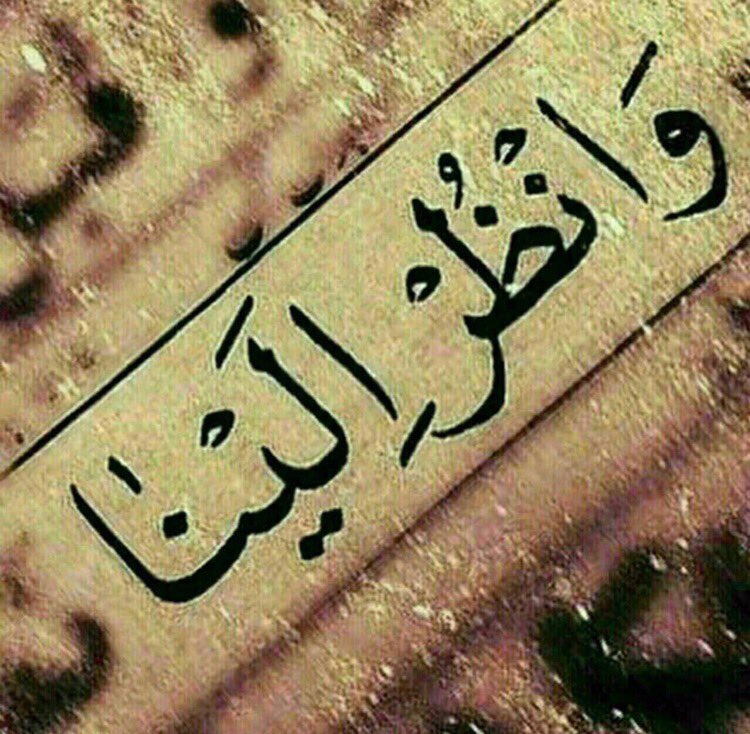 وَانْظُرْ اِلَيْنَا